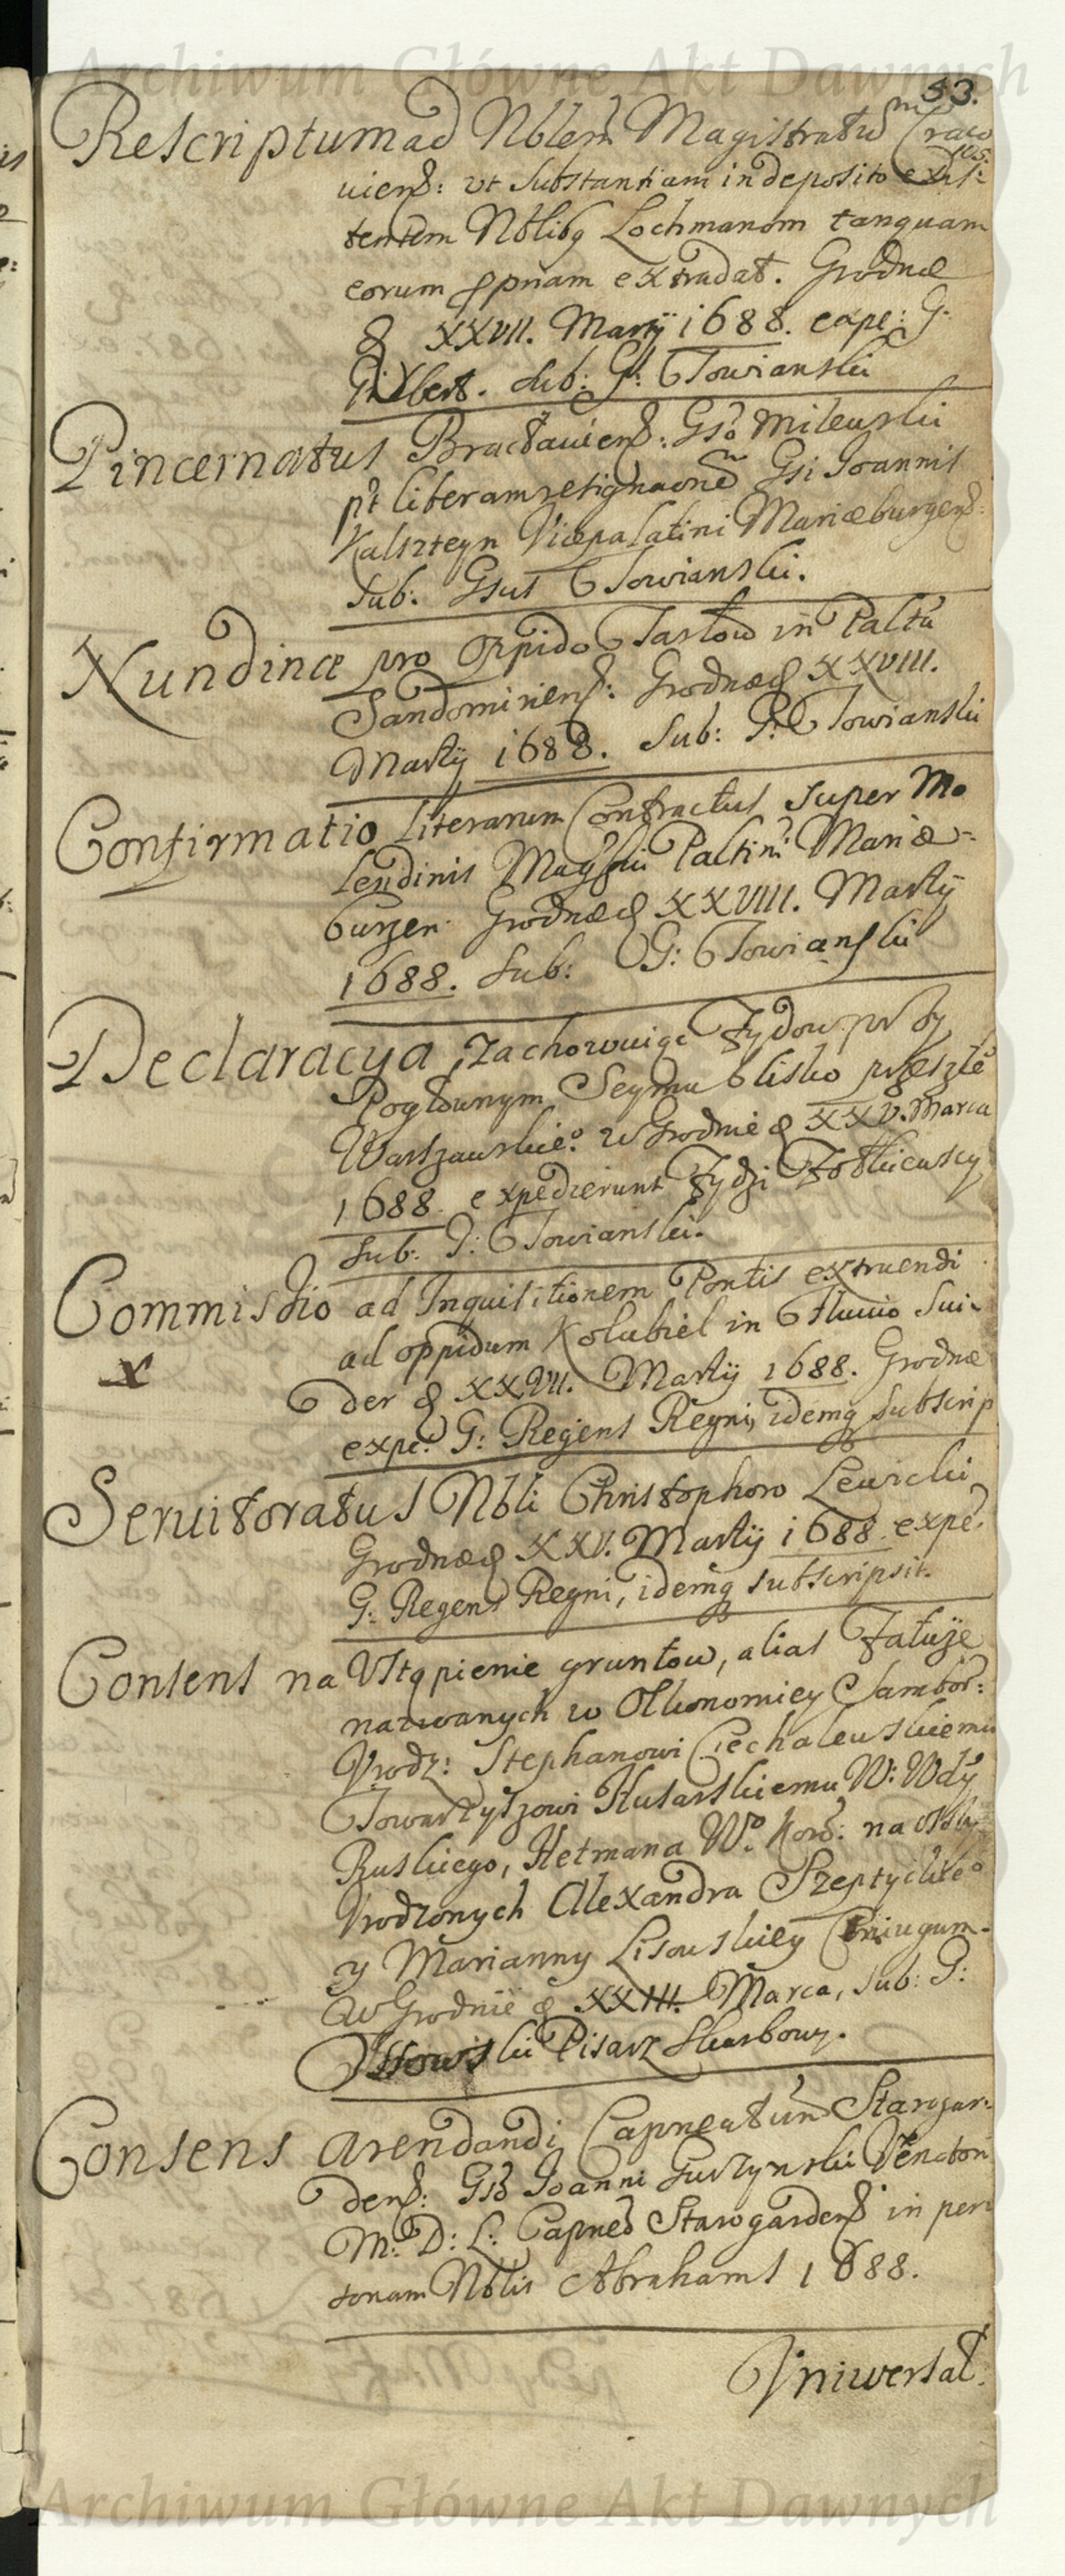 Archiwum Główne Akt Dawnych
53.
Rescriptum ad Nblem Magistratum Craco
uiens: vt Substantiam in deposito exis:
tentem Nblibq Lochmanom tanquam
eorum ppriam extradat. Grodnæ
d XXVII. Martij 1688. expe: G.
Gilbert. Sub: G: Towianski
Pincernatus Bractauiens: Gso Mileuski
pt liberam resignaonem Gsi Joannis
Kalszteyn Vicepalatini Mariæburgens:
Sub. Gsus Towianski.
Nundinæ pro Oppido Tarłow in Paltu
Sandomiriens: Grodnæ d XXVIII.
Martij 1688. Sub: G: Towianski
Confirmatio Literarum Contractus super Mo
lendinis Magsci Paltini Mariæ-
burgen. Grodnæ d XXVIII. Martij
1688. Sub: G: Towianski
Declaracya Zachowuiąc Żydow przy
Pogłownym Seymu blisko przeszłeº
Warszawskieº. w Grodnie d XXV. Marca
1688. expedierunt Żydzi Żołkiewscy
Sub: G: Towianski.
Commissio ad Inquisitionem Pontis extruendi
x
ad oppidum Kolubiel in Fluuio Swi-
der d XXVII. Martij 1688. Grodnæ
expe: G: Regens Regni, idemq subscrip
Seruitoratus Nbli Christophoro Lewicki
Grodnæ d XXV. Martij 1688. expe:
G: Regens Regni, idemq subscripsit.
Consens na Vstąpienie gruntow, alias Załuże
nazwanych w Olkonomiey Sambor:
Vrodz: Stephanowi Ciechaleuskiemu
Towarzyszowi Husarskiemu W: Wdy
Ruskiego, Hetmana Wº Kor: na
Vrodzonych Alexandra Szeptyckieº
y Marianny Lisouskiey Coniugum.
w Grodnie d XXIII. Marca, Sub: G:
Pisarz Skarbowy.
Consens arendandi Capneatum Starogar:
dens: Gso Joanni Guszynski Venatori
M: D: L: Capneo Starogardens in per
sonam Nblis Abrahams 1688.
Vniwersał:
Archiwum Główne Akt Dawnych